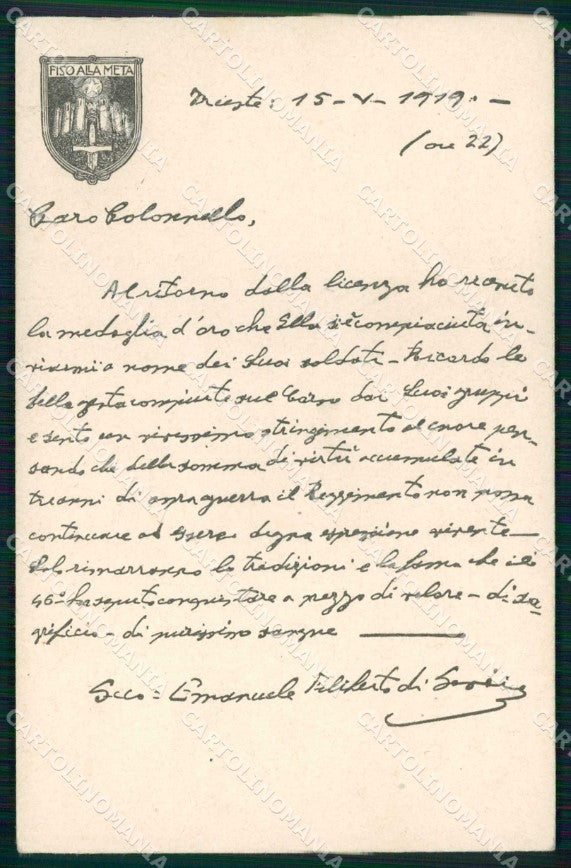 FISO ALLA META
Trieste: 15-V-1919.-
(ore 22)
Caro Colonnello,
Al ritorno dalla licenza ho ricevuto
la medaglia d'oro che Ella s'è compiaciuta in-
viarmi a nome dei Suoi soldati - Ricordo le
belle gesta compiute sul Carso dai Suoi gruppi
e sento un vivissimo stringimento al cuore pen-
sando che della somma di virtù accumulate in
tre anni di aspra guerra il Reggimento non possa
continuare ad essere degna espressione vivente —
Solo rimarranno le tradizioni e la fama che il
46° ha saputo conquistare a prezzo di valore - di sa-
grificio - di purissimo sangue —
Emanuele Filiberto di Savoia
CARTOLINOMANIA